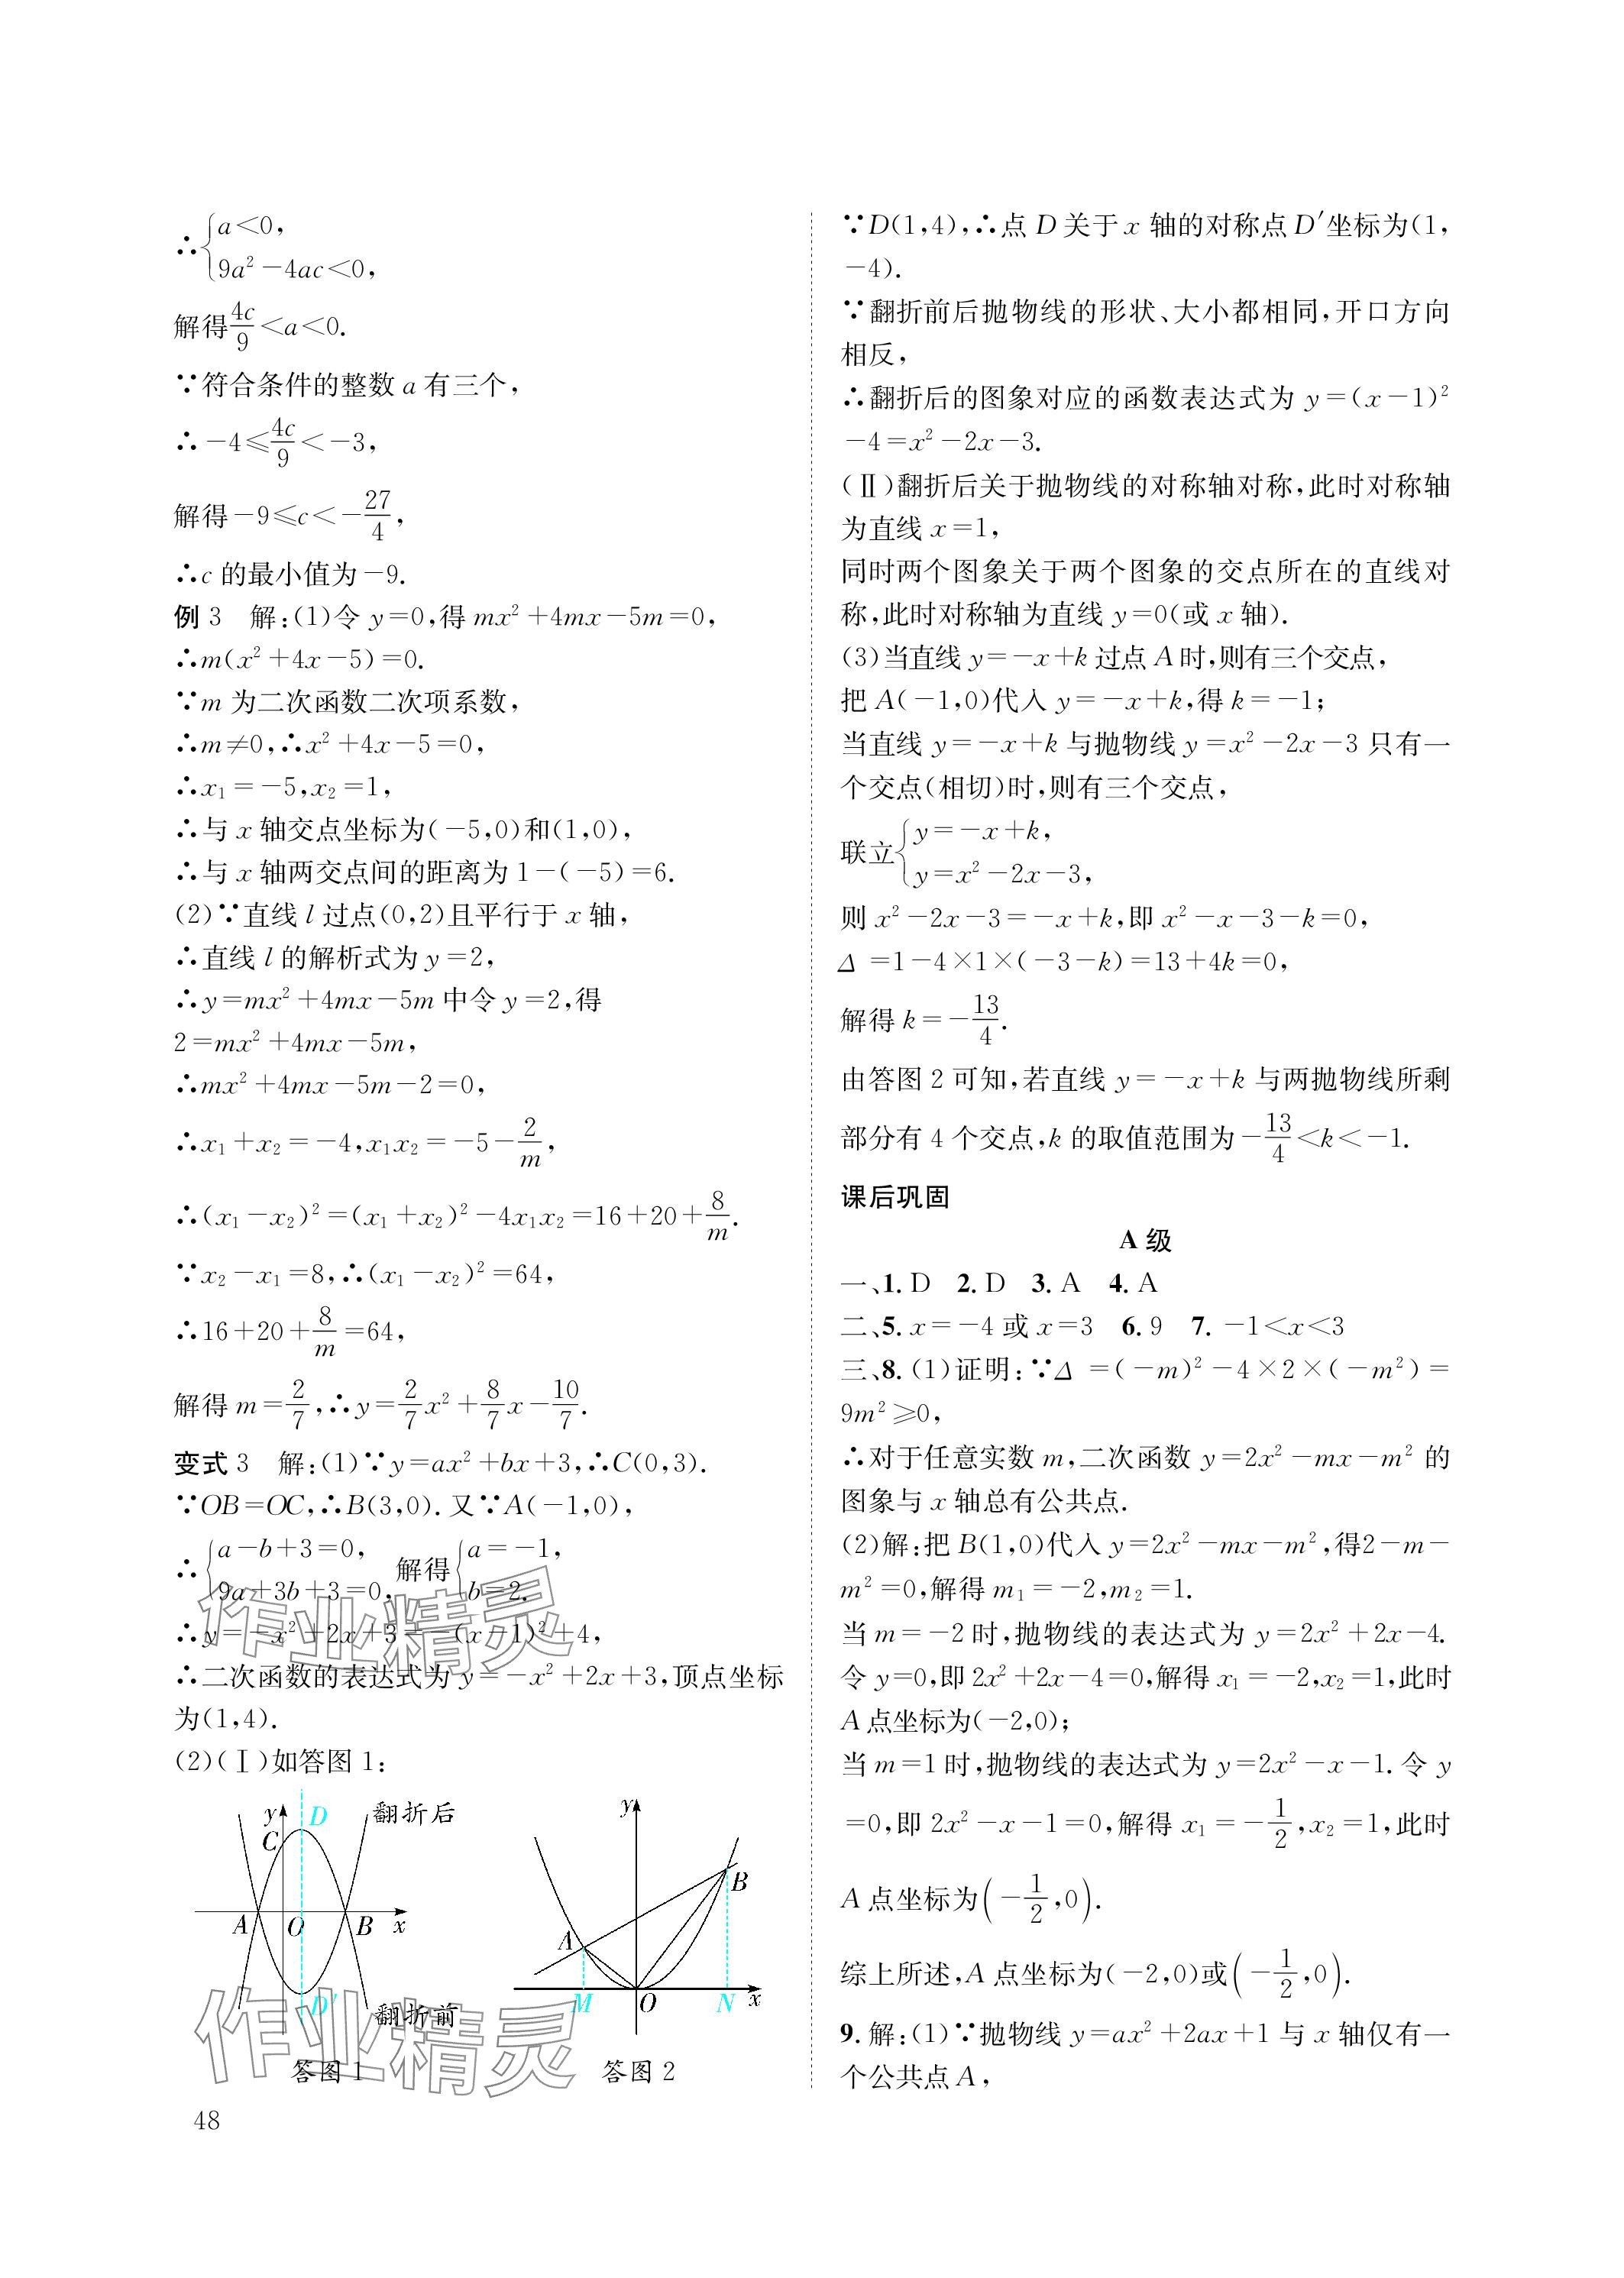 ∴{a<0,
9a²-4ac<0,
解得4c/9<a<0.
∵符合条件的整数 a 有三个,
∴-4≤4c/9<-3,
解得-9≤c<-27/4,
∴c 的最小值为-9.
例 3 解:(1)令 y=0,得 mx²+4mx-5m=0,
∴m(x²+4x-5)=0.
∵m 为二次函数二次项系数,
∴m≠0,∴x²+4x-5=0,
∴x₁=-5,x₂=1,
∴与 x 轴交点坐标为(-5,0)和(1,0),
∴与 x 轴两交点间的距离为 1-(-5)=6.
(2)∵直线 l 过点(0,2)且平行于 x 轴,
∴直线 l 的解析式为 y=2,
∴y=mx²+4mx-5m 中令 y=2,得
2=mx²+4mx-5m,
∴mx²+4mx-5m-2=0,
∴x₁+x₂=-4,x₁x₂=-5-2/m,
∴(x₁-x₂)²=(x₁+x₂)²-4x₁x₂=16+20+8/m.
∵x₂-x₁=8,∴(x₁-x₂)²=64,
∴16+20+8/m=64,
解得 m=2/7,∴y=2/7x²+8/7x-10/7.
变式 3 解:(1)∵y=ax²+bx+3,∴C(0,3).
∵OB=OC,∴B(3,0).又∵A(-1,0),
∴{a-b+3=0, 解得{a=-1,
9a+3b+3=0, b=2.
∴y=-x²+2x+3=-(x-1)²+4,
∴二次函数的表达式为 y=-x²+2x+3,顶点坐标
为(1,4).
(2)(Ⅰ)如答图 1:
y D 翻折后
C
A O B x
D′ 翻折前
答图 1
y
B
A
M O N x
答图 2
48
∵D(1,4),∴点 D 关于 x 轴的对称点 D′坐标为(1,
-4).
∵翻折前后抛物线的形状、大小都相同,开口方向
相反,
∴翻折后的图象对应的函数表达式为 y=(x-1)²
-4=x²-2x-3.
(Ⅱ)翻折后关于抛物线的对称轴对称,此时对称轴
为直线 x=1,
同时两个图象关于两个图象的交点所在的直线对
称,此时对称轴为直线 y=0(或 x 轴).
(3)当直线 y=-x+k 过点 A 时,则有三个交点,
把 A(-1,0)代入 y=-x+k,得 k=-1;
当直线 y=-x+k 与抛物线 y=x²-2x-3 只有一
个交点(相切)时,则有三个交点,
联立{y=-x+k,
y=x²-2x-3,
则 x²-2x-3=-x+k,即 x²-x-3-k=0,
Δ=1-4×1×(-3-k)=13+4k=0,
解得 k=-13/4.
由答图 2 可知,若直线 y=-x+k 与两抛物线所剩
部分有 4 个交点,k 的取值范围为-13/4<k<-1.
课后巩固
A 级
一、1. D 2. D 3. A 4. A
二、5. x=-4 或 x=3 6. 9 7. -1<x<3
三、8. (1)证明:∵Δ=(-m)²-4×2×(-m²)=
9m²≥0,
∴对于任意实数 m,二次函数 y=2x²-mx-m² 的
图象与 x 轴总有公共点.
(2)解:把 B(1,0)代入 y=2x²-mx-m²,得2-m-
m²=0,解得 m₁=-2,m₂=1.
当 m=-2 时,抛物线的表达式为 y=2x²+2x-4.
令 y=0,即 2x²+2x-4=0,解得 x₁=-2,x₂=1,此时
A 点坐标为(-2,0);
当 m=1 时,抛物线的表达式为 y=2x²-x-1.令 y
=0,即 2x²-x-1=0,解得 x₁=-1/2,x₂=1,此时
A 点坐标为(-1/2,0).
综上所述,A 点坐标为(-2,0)或(-1/2,0).
9. 解:(1)∵抛物线 y=ax²+2ax+1 与 x 轴仅有一
个公共点 A,
作业精灵
作业精灵